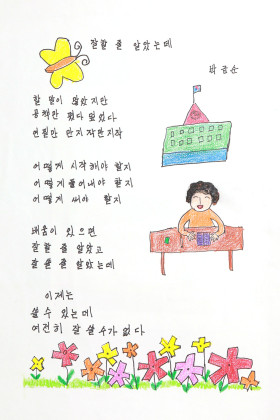 잘할 줄 알았는데
박금순
할 말이 많았지만
공책만 폈다 덮었다
연필만 만지작만지작
어떻게 시작해야 할지
어떻게 풀어내야 할지
어떻게 써야 할지
배움이 있으면
잘할 줄 알았고
잘 쓸 줄 알았는데
이제는
쓸 수 있는데
여전히 잘 쓸 수가 없다